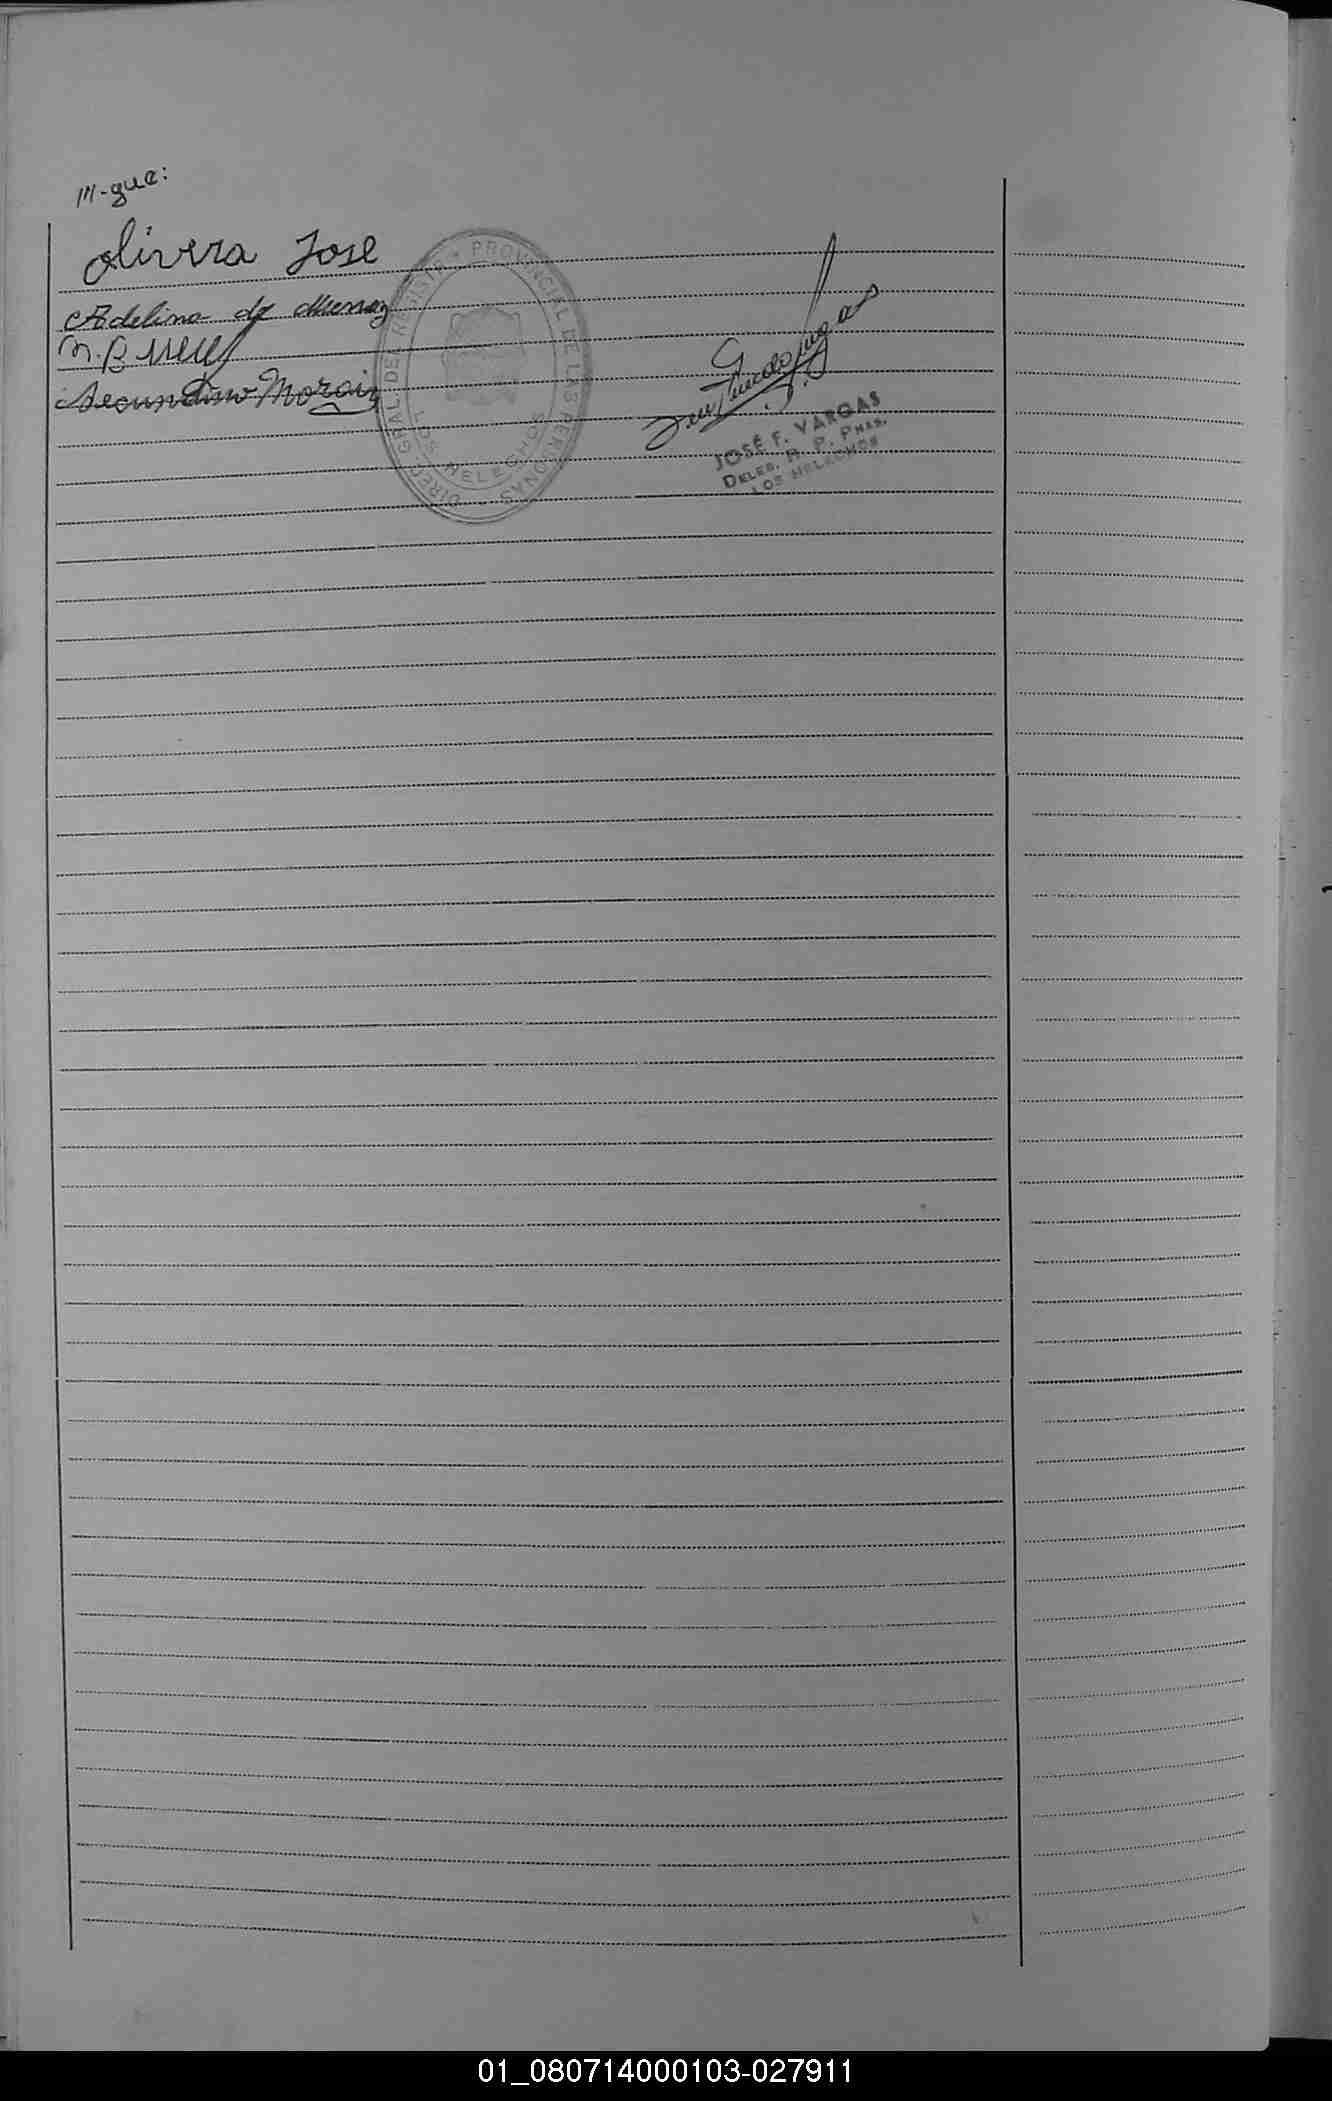 M-gue:
Olivera Jose
Adelina de Munoz
Secundino Morais
DIREC. GRAL. DEL REGISTRO PROVINCIAL DE LAS PERSONAS
LOS HELECHOS
JOSÉ F. VARGAS
DELEG. R. P. PNAS.
LOS HELECHOS
01_080714000103-027911